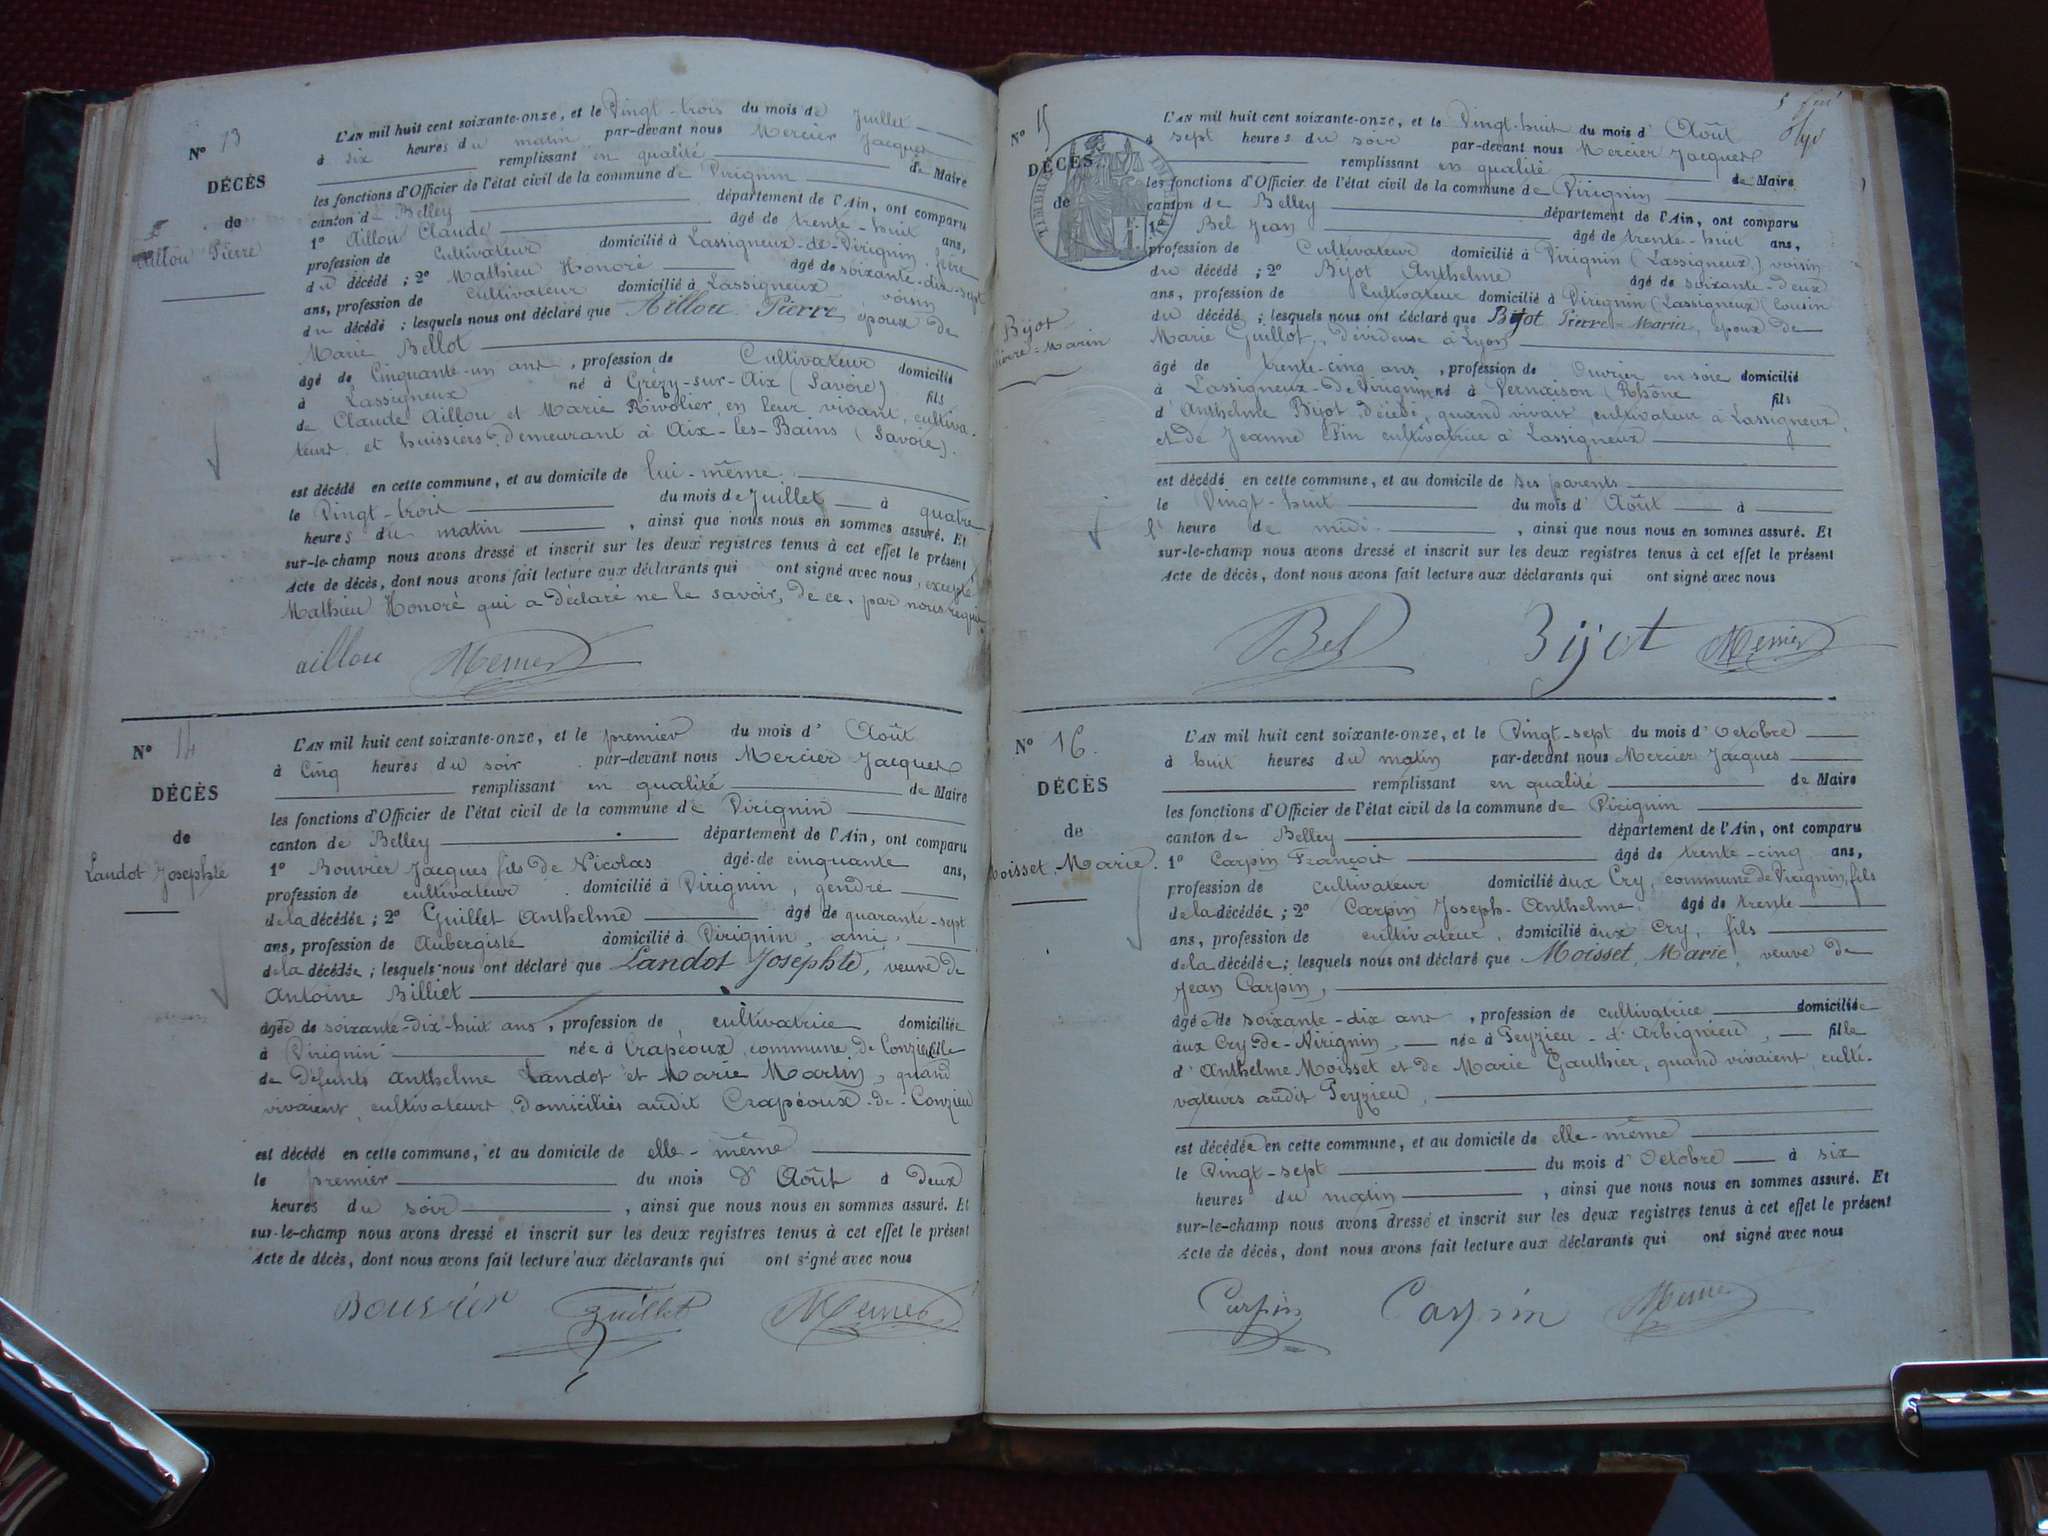 N° 13
DÉCÈS
de
Aillou Pierre
L'AN mil huit cent soixante-onze, et le Vingt-trois du mois de Juillet
à six heures du matin par-devant nous Mercier Jacques
remplissant en qualité de Maire
les fonctions d'Officier de l'état civil de la commune de Virignin
canton de Belley département de l'Ain, ont comparu
1° Aillou Claude âgé de trente-huit ans,
profession de Cultivateur domicilié à Lassigneux-de-Virignin, frère
du décédé ; 2° Mathieu Honoré âgé de soixante-dix-sept
ans, profession de cultivateur domicilié à Lassigneux voisin
du décédé ; lesquels nous ont déclaré que Aillou Pierre, époux de
Marie Bellot
âgé de Cinquante-un ans, profession de Cultivateur domicilié
à Lassigneux né à Grézy-sur-Aix (Savoie) fils
de Claude Aillou et Marie Rivolier, en leur vivant, cultiva-
teurs et huissiers demeurant à Aix-les-Bains (Savoie).
est décédé en cette commune, et au domicile de lui-même
le Vingt-trois du mois de Juillet à quatre
heures du matin, ainsi que nous nous en sommes assuré. Et
sur-le-champ nous avons dressé et inscrit sur les deux registres tenus à cet effet le présent
Acte de décès, dont nous avons fait lecture aux déclarants qui ont signé avec nous, excepté
Mathieu Honoré qui a déclaré ne le savoir, de ce, par nous requis
aillou Mercier
N° 14
DÉCÈS
de
Landot Josephte
L'AN mil huit cent soixante-onze, et le premier du mois d' Août
à Cinq heures du soir par-devant nous Mercier Jacques
remplissant en qualité de Maire
les fonctions d'Officier de l'état civil de la commune de Virignin
canton de Belley département de l'Ain, ont comparu
1° Bouvier Jacques fils de Nicolas âgé de cinquante ans,
profession de cultivateur domicilié à Virignin, gendre
de la décédée ; 2° Guillet Anthelme âgé de quarante-sept
ans, profession de Aubergiste domicilié à Virignin, ami,
de la décédée ; lesquels nous ont déclaré que Landot Josephte, veuve de
Antoine Billiet
âgée de soixante-dix-huit ans, profession de cultivatrice domiciliée
à Virignin née à Crapéoux, commune de Conzieu fille
de défunts Anthelme Landot et Marie Martin, quand
vivaient, cultivateurs domiciliés audit Crapéoux-de-Conzieu
est décédé en cette commune, et au domicile de elle-même
le premier du mois d' Août à deux
heures du soir, ainsi que nous nous en sommes assuré. Et
sur-le-champ nous avons dressé et inscrit sur les deux registres tenus à cet effet le présent
Acte de décès, dont nous avons fait lecture aux déclarants qui ont signé avec nous
Bouvier Guillet Mercier
N° 15
DÉCÈS
de
Bijot
Pierre-Marin
L'AN mil huit cent soixante-onze, et le Vingt-huit du mois d' Août
à sept heures du soir par-devant nous Mercier Jacques
remplissant en qualité de Maire
les fonctions d'Officier de l'état civil de la commune de Virignin
canton de Belley département de l'Ain, ont comparu
1° Bel Jean âgé de trente-huit ans,
profession de Cultivateur domicilié à Virignin (Lassigneux) voisin
du décédé ; 2° Bijot Anthelme âgé de soixante-deux
ans, profession de Cultivateur domicilié à Virignin (Lassigneux) Cousin
du décédé ; lesquels nous ont déclaré que Bijot Pierre-Marin, époux de
Marie Guillot, dévideuse à Lyon
âgé de trente-cinq ans, profession de Ouvrier en soie domicilié
à Lassigneux-de-Virignin né à Vernaison (Rhône fils
d' Anthelme Bijot décédé, quand vivait, cultivateur à Lassigneux,
et de Jeanne Pin cultivatrice à Lassigneux
est décédé en cette commune, et au domicile de ses parents
le Vingt-huit du mois d' Août à
l' heure de midi, ainsi que nous nous en sommes assuré. Et
sur-le-champ nous avons dressé et inscrit sur les deux registres tenus à cet effet le présent
Acte de décès, dont nous avons fait lecture aux déclarants qui ont signé avec nous
Bel Bijot Mercier
N° 16.
DÉCÈS
de
Moisset Marie.
L'AN mil huit cent soixante-onze, et le Vingt-sept du mois d' Octobre
à huit heures du matin par-devant nous Mercier Jacques
remplissant en qualité de Maire
les fonctions d'Officier de l'état civil de la commune de Virignin
canton de Belley département de l'Ain, ont comparu
1° Carpin François âgé de trente-cinq ans,
profession de cultivateur domicilié aux Cry, commune de Virignin, fils
de la décédée ; 2° Carpin Joseph-Anthelme âgé de trente
ans, profession de cultivateur, domicilié aux Cry, fils
de la décédée ; lesquels nous ont déclaré que Moisset Marie, veuve de
Jean Carpin,
âgée de soixante-dix ans, profession de cultivatrice domiciliée
aux Cry de-Virignin, née à Peyzieu-d'Arbignieu, fille
d' Anthelme Moisset et de Marie Gauthier, quand vivaient, culti-
vateurs audit Peyzieu,
est décédée en cette commune, et au domicile de elle-même
le Vingt-sept du mois d' Octobre à six
heures du matin, ainsi que nous nous en sommes assuré. Et
sur-le-champ nous avons dressé et inscrit sur les deux registres tenus à cet effet le présent
Acte de décès, dont nous avons fait lecture aux déclarants qui ont signé avec nous
Carpin Carpin Mercier